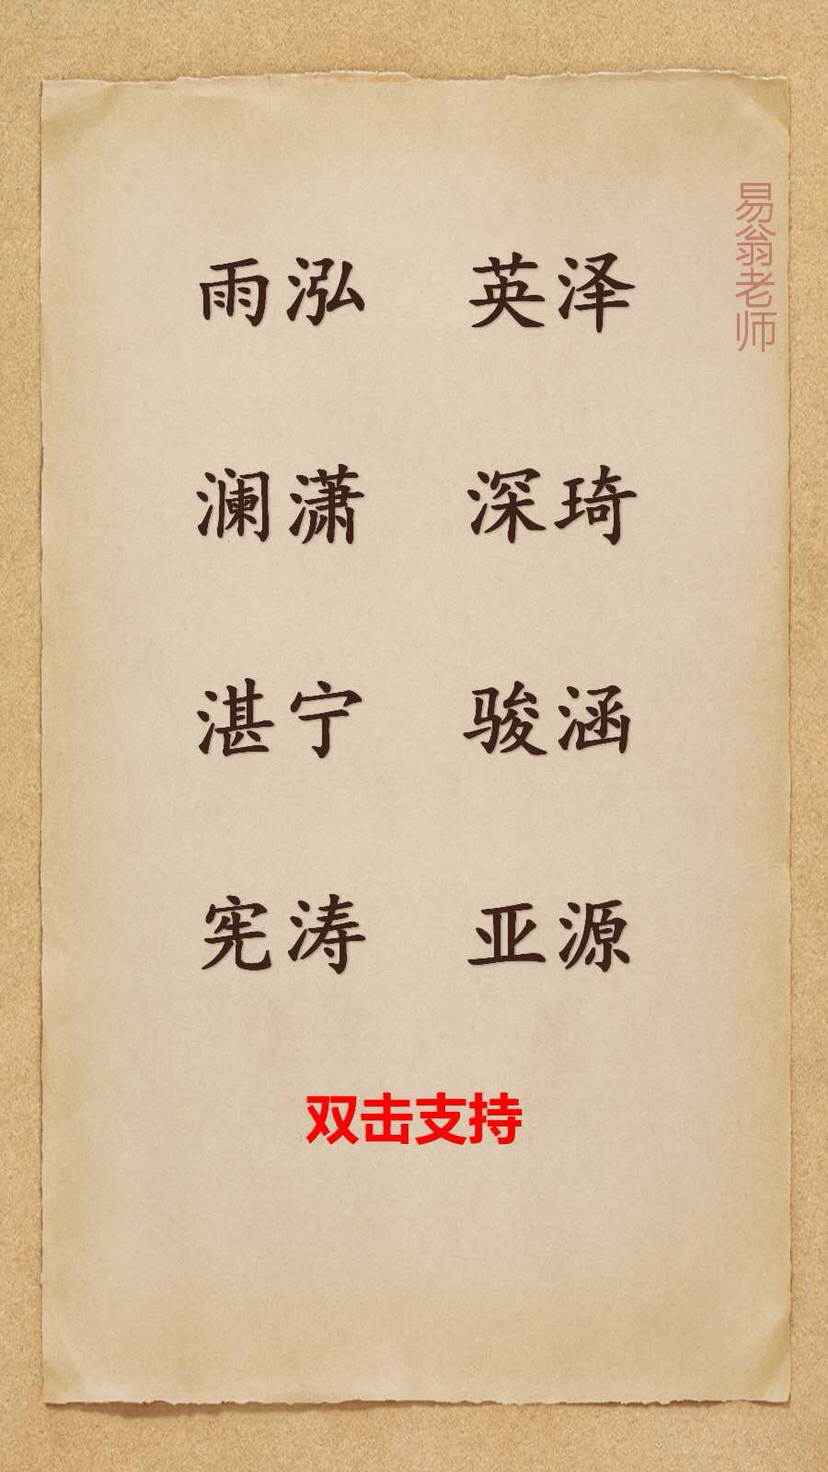 易翁老师
雨泓 英泽
澜潇 深琦
湛宁 骏涵
宪涛 亚源
双击支持